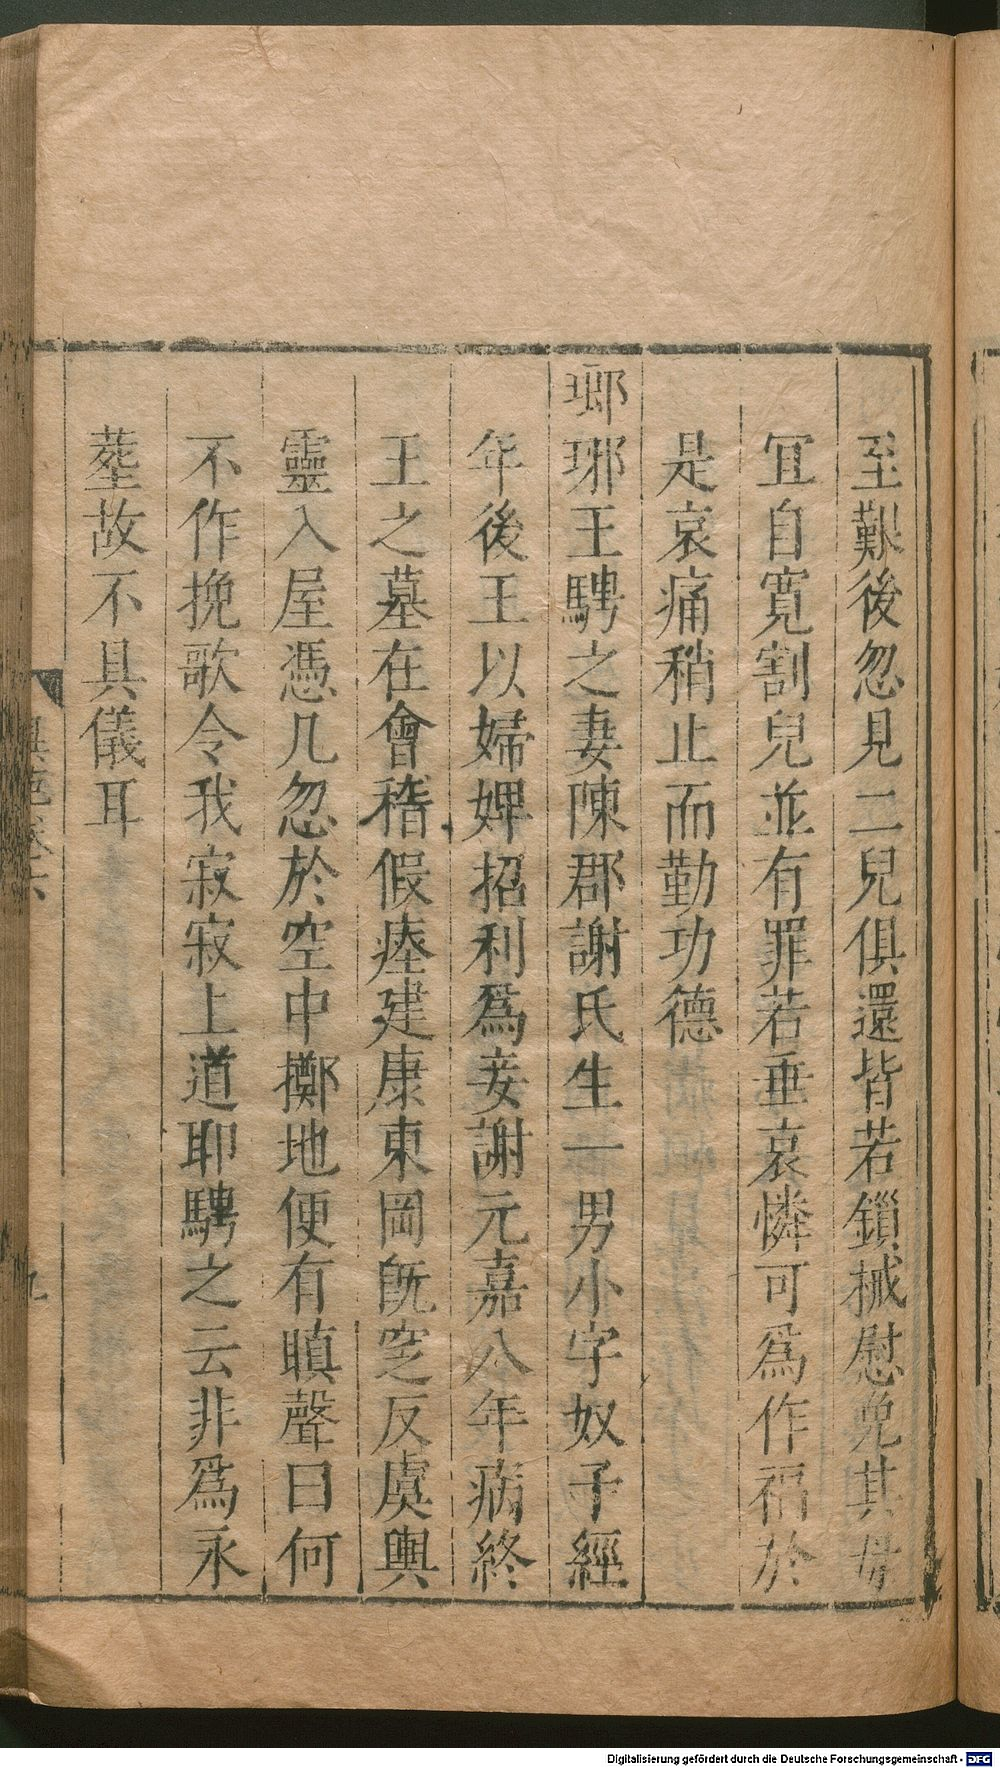 至艱後忽見二兒俱還皆若鎖械慰免其母
冝自寬割兒並有罪若垂哀憐可爲作福於
是哀痛稍止而勤功德
瑯琊王騁之妻陳郡謝氏生一男小字奴子經
年後王以婦婢招利爲妾謝元嘉八年病終
王之墓在會稽假瘞建康東岡旣窆反虞輿
靈入屋憑几忽於空中擲地便有瞋聲曰何
不作挽歌令我寂寂上道耶騁之云非爲永
塟故不具儀耳
異苑卷六
九
Digitalisierung gefördert durch die Deutsche Forschungsgemeinschaft - DFG